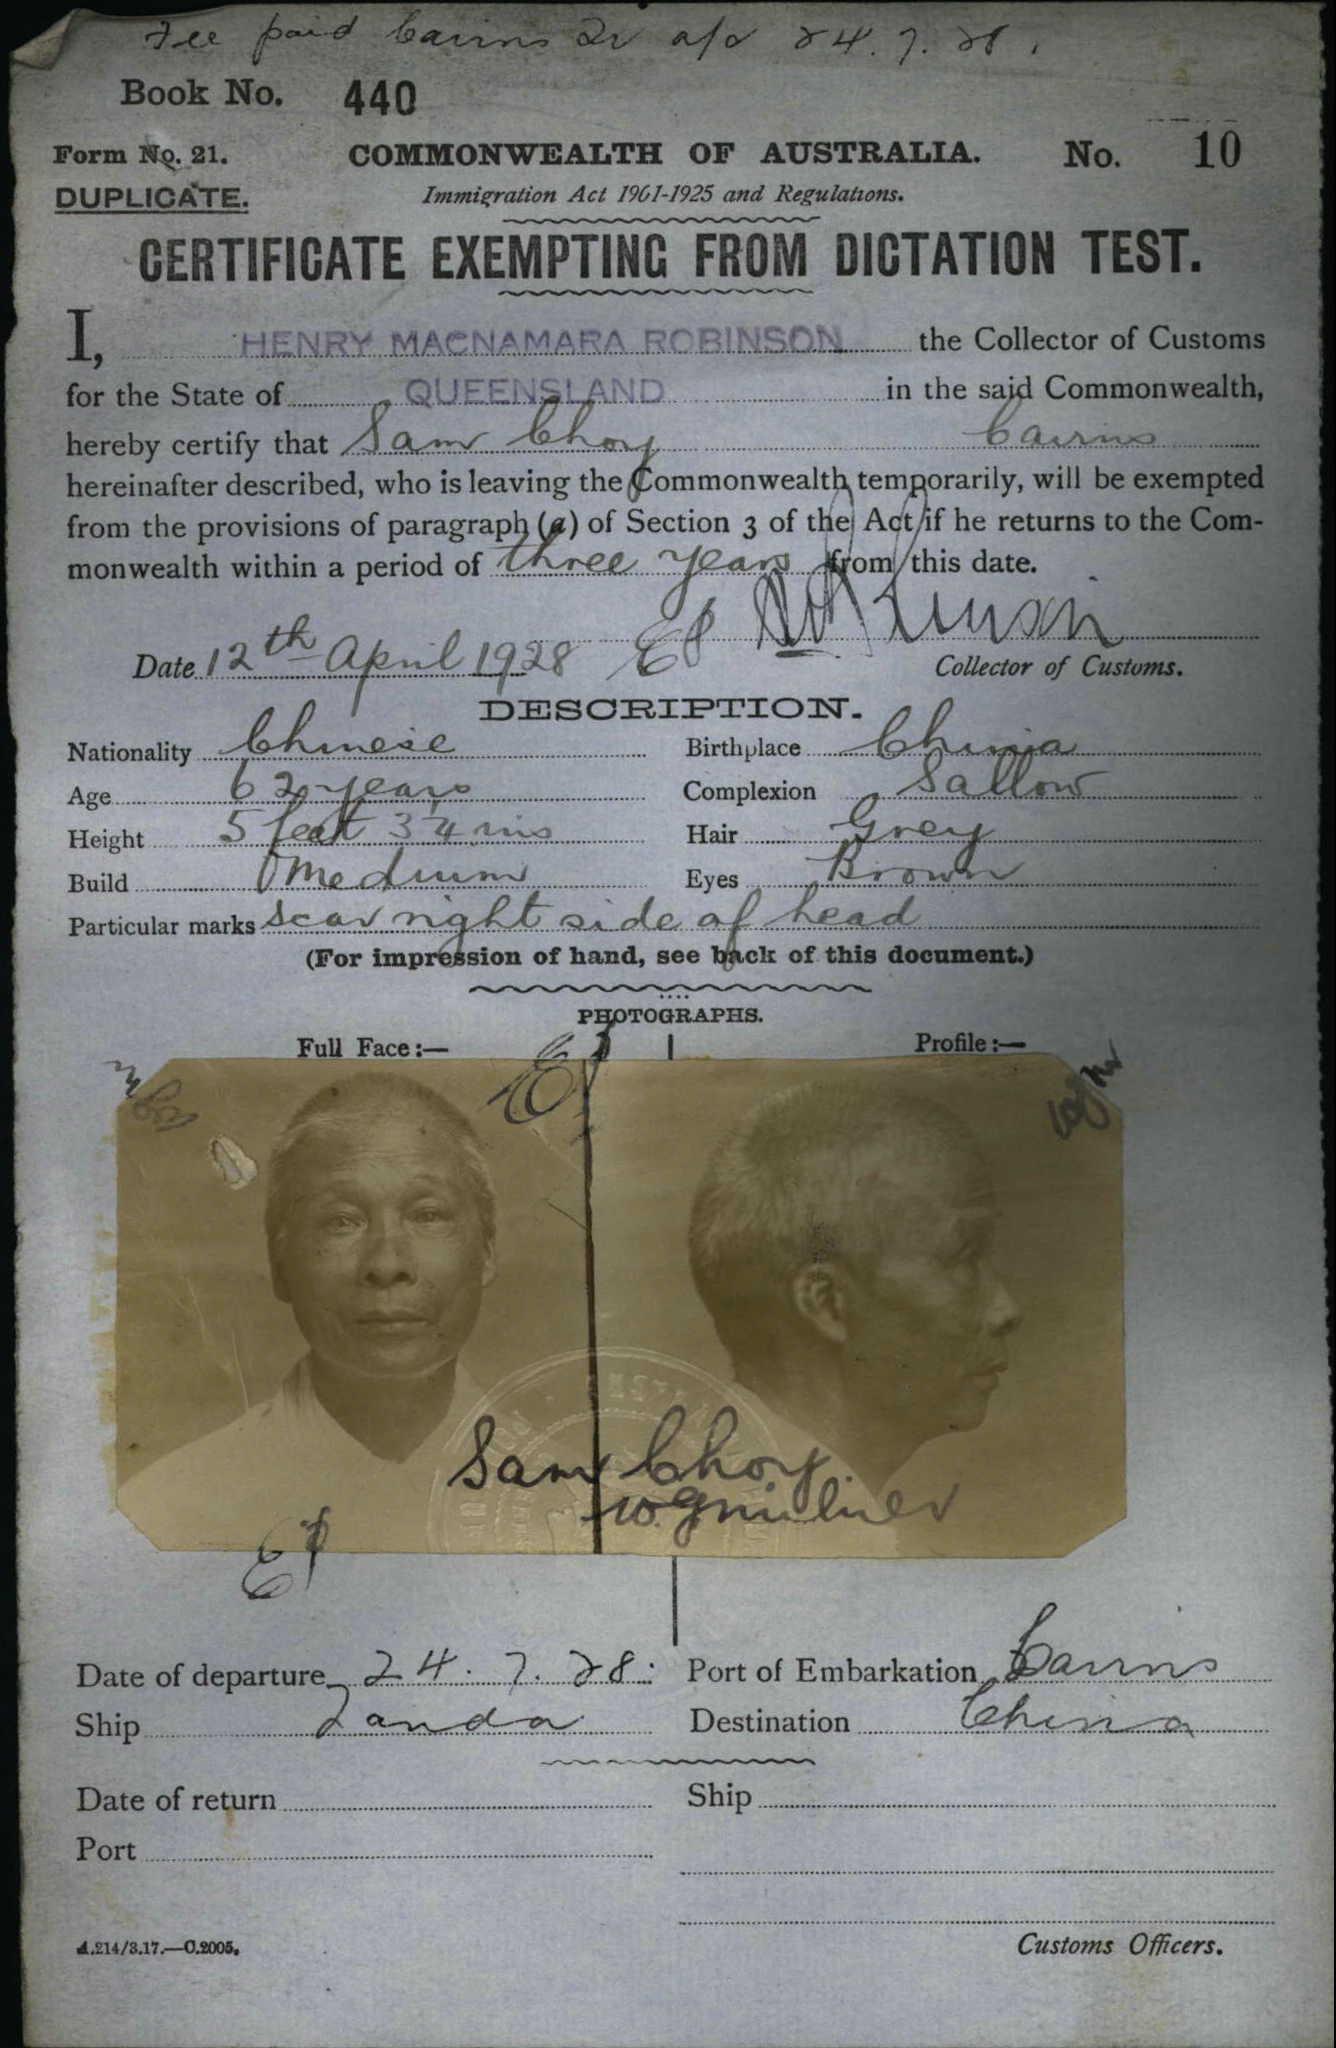 Fee paid Cairns Dr a/c 24.7.28.
Book No. 440
Form No. 21. COMMONWEALTH OF AUSTRALIA. No. 10
DUPLICATE. Immigration Act 1901-1925 and Regulations.
CERTIFICATE EXEMPTING FROM DICTATION TEST.
I, HENRY MACNAMARA ROBINSON the Collector of Customs
for the State of QUEENSLAND in the said Commonwealth,
hereby certify that Sam Choy Cairns
hereinafter described, who is leaving the Commonwealth temporarily, will be exempted
from the provisions of paragraph (a) of Section 3 of the Act if he returns to the Com-
monwealth within a period of three years from this date.
Date 12th April 1928 Collector of Customs.
DESCRIPTION.
Nationality Chinese Birthplace China
Age 62 years Complexion Sallow
Height 5 feet 3¼ ins Hair Grey
Build Medium Eyes Brown
Particular marks scar right side of head
(For impression of hand, see back of this document.)
PHOTOGRAPHS.
Full Face:— Profile:—
Sam Choy
W.G.Milner
Date of departure 24.7.28. Port of Embarkation Cairns
Ship Tanda Destination China
Date of return Ship
Port
A.214/3.17.—C.2005. Customs Officers.